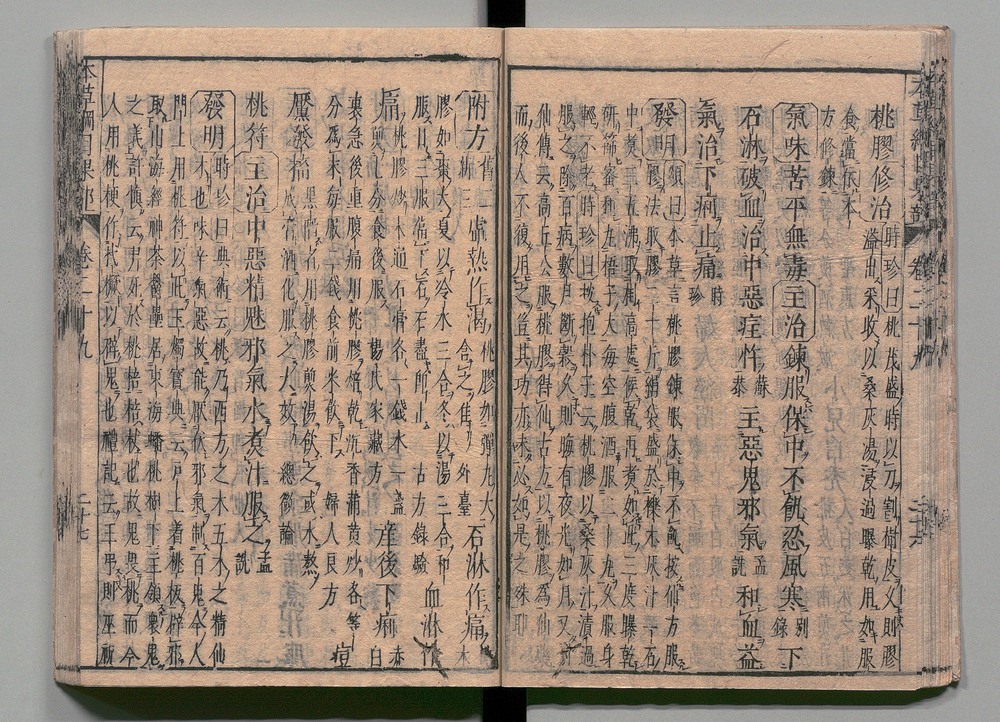 桃膠修治時珍曰桃茂盛時以刀割樹皮久則膠
溢出采收以桑灰湯浸過曝乾用如服
食當依本
方修鍊
氣味苦平無毒主治鍊服保中不飢忍風寒別錄下
石淋破血治中惡疰忤蘇恭主惡鬼邪氣孟詵和血益
氣治下痢止痛時珍
發明頌曰本草言桃膠鍊服保中不飢按仙方服
膠法取膠二十斤絹袋盛於櫟木灰汁一石
中煮三五沸取挂高處候乾再煮如此三度曝乾
研篩蜜和丸梧子大每空腹酒服二十丸久服身
輕不老時珍曰按抱朴子云桃膠以桑灰汁漬過
服之除百病數月斷穀久則晦夜有光如月又列
仙傳云高丘公服桃膠得仙古方以桃膠為仙藥
而後人不復用之豈其功亦未必如是之殊耶
附方舊二新三虛熱作渴桃膠如彈丸大含之佳外臺石淋作痛木
膠如棗大夏以冷水三合冬以湯三合和
服日三服當下石石盡即止古方錄驗血淋作
痛桃膠炒木通石膏各一錢水一盞
煎七分食後服楊氏家藏方產後下痢赤白
裏急後重㽲痛用桃膠焙乾沉香蒲黃炒各等
分為末每服二錢食前米飲下婦人良方痘
黶發搐黑陷者用桃膠煎湯飲之或水熬
膏酒化服之大效總微論
桃符主治中惡精魅邪氣水煮汁服之孟詵
發明時珍曰典術云桃乃西方之木五木之精仙
木也味辛氣惡故能厭伏邪氣制百鬼今人
門上用桃符以此玉燭寶典云戶上著桃板辟邪
取山海經神荼鬱壘居東海蟠桃樹下主領衆鬼
之義許慎云羿死於桃棓棓杖也故鬼畏桃而今
人用桃梗作杙橛以辟鬼也禮記云王弔則巫祝